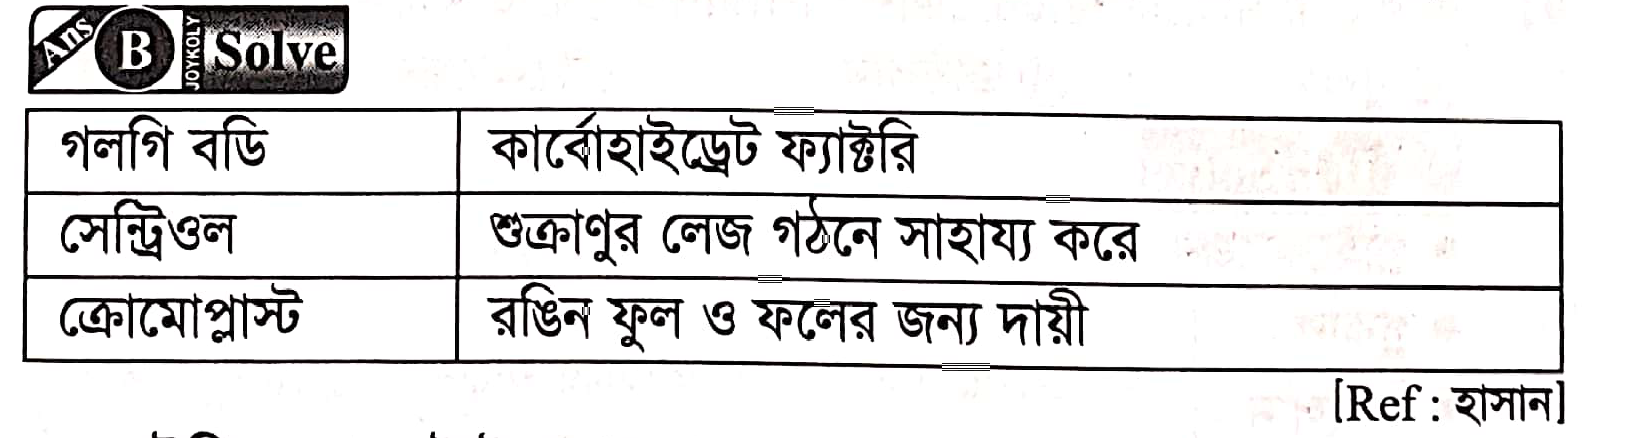 Ans B JOYKOLY Solve
গলগি বডি কার্বোহাইড্রেট ফ্যাক্টরি
সেন্ট্রিওল শুক্রাণুর লেজ গঠনে সাহায্য করে
ক্রোমোপ্লাস্ট রঙিন ফুল ও ফলের জন্য দায়ী
[Ref : হাসান]